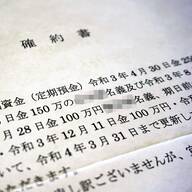 確約書
資金（定期預金）令和3年4月30日金25
日金150万の 名義及び令和3年
月28日金100万円 名義、期日前
令和3年12月11日金100万円、令
いて、令和4年3月31日まで更新し
訳ございませんが、宜
だきます